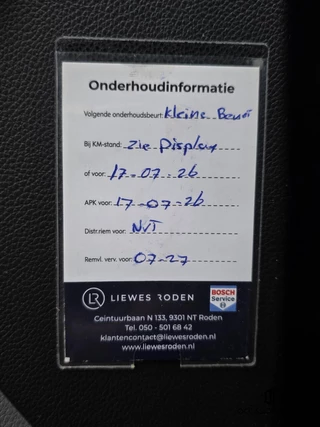 Onderhoudinformatie
Volgende onderhoudsbeurt: Kleine Beurt
Bij KM-stand: Zie Display
of voor: 17-07-26
APK voor: 17-07-26
Distr.riem voor: NVT
Remvl. verv. voor: 07-27
LR LIEWES RODEN BOSCH Service
Ceintuurbaan N 133, 9301 NT Roden
Tel. 050 - 501 68 42
klantencontact@liewesroden.nl
www.liewesroden.nl